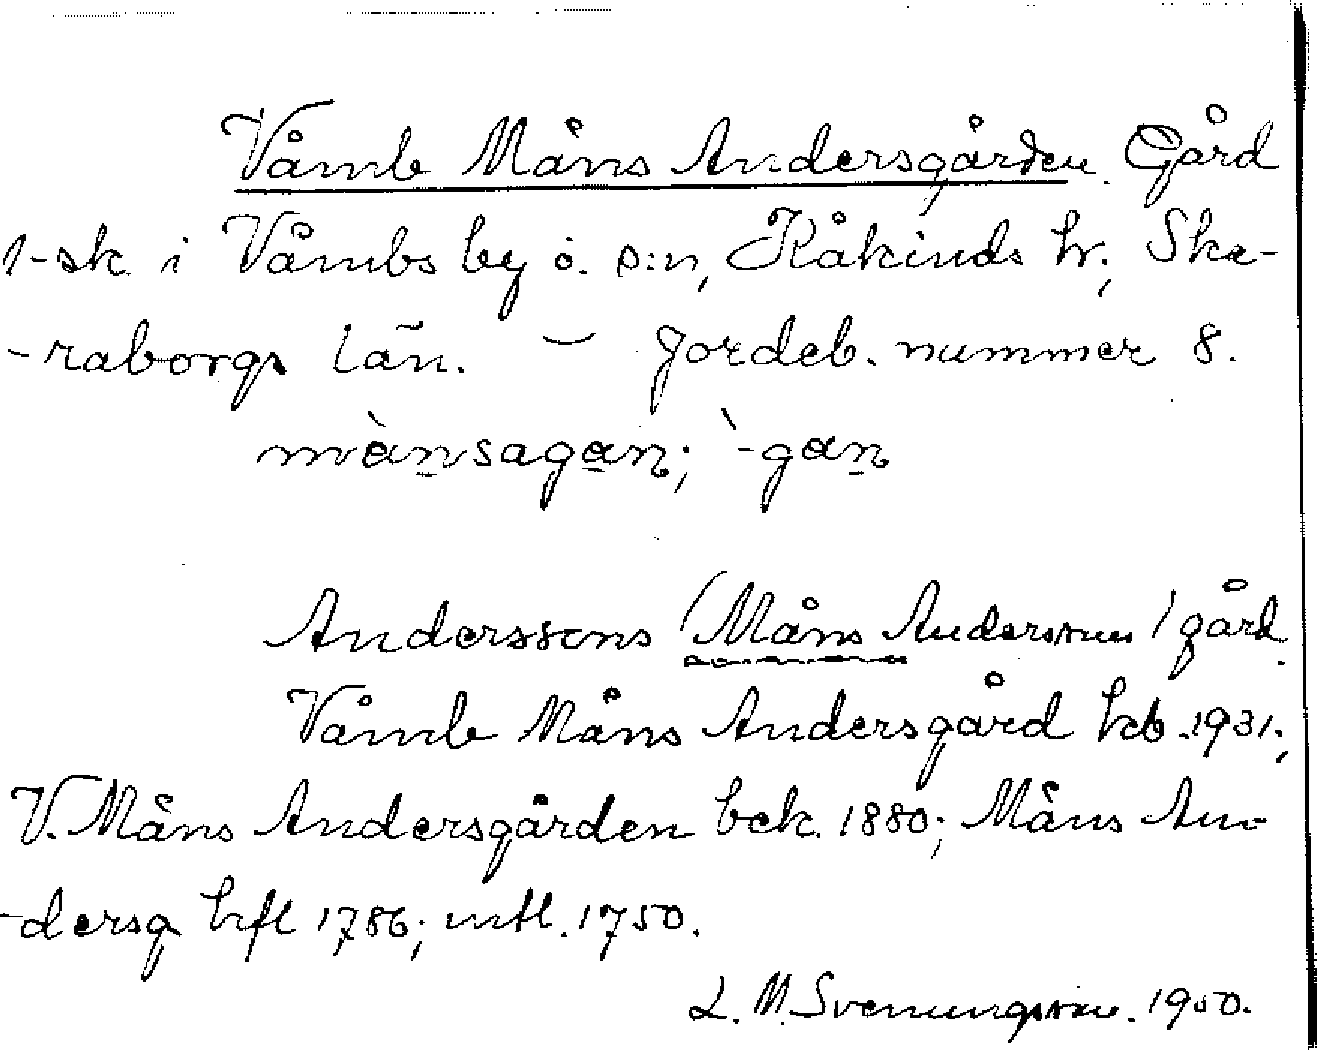 Våmb Måns Andersgården. Gård
1-sk i Våmbs by o. s:n, Kåkinds hr; Ska-
-raborgs län. — Jordeb. nummer 8.
mànsagan; `-gan
Anderssons (Måns Anderssons) gård.
Våmb Måns Andersgård kb. 1931;
V. Måns Andersgården bek. 1880; Måns An-
-dersg hfl 1786; mtl. 1750.
L. M. Svenungsson. 1950.